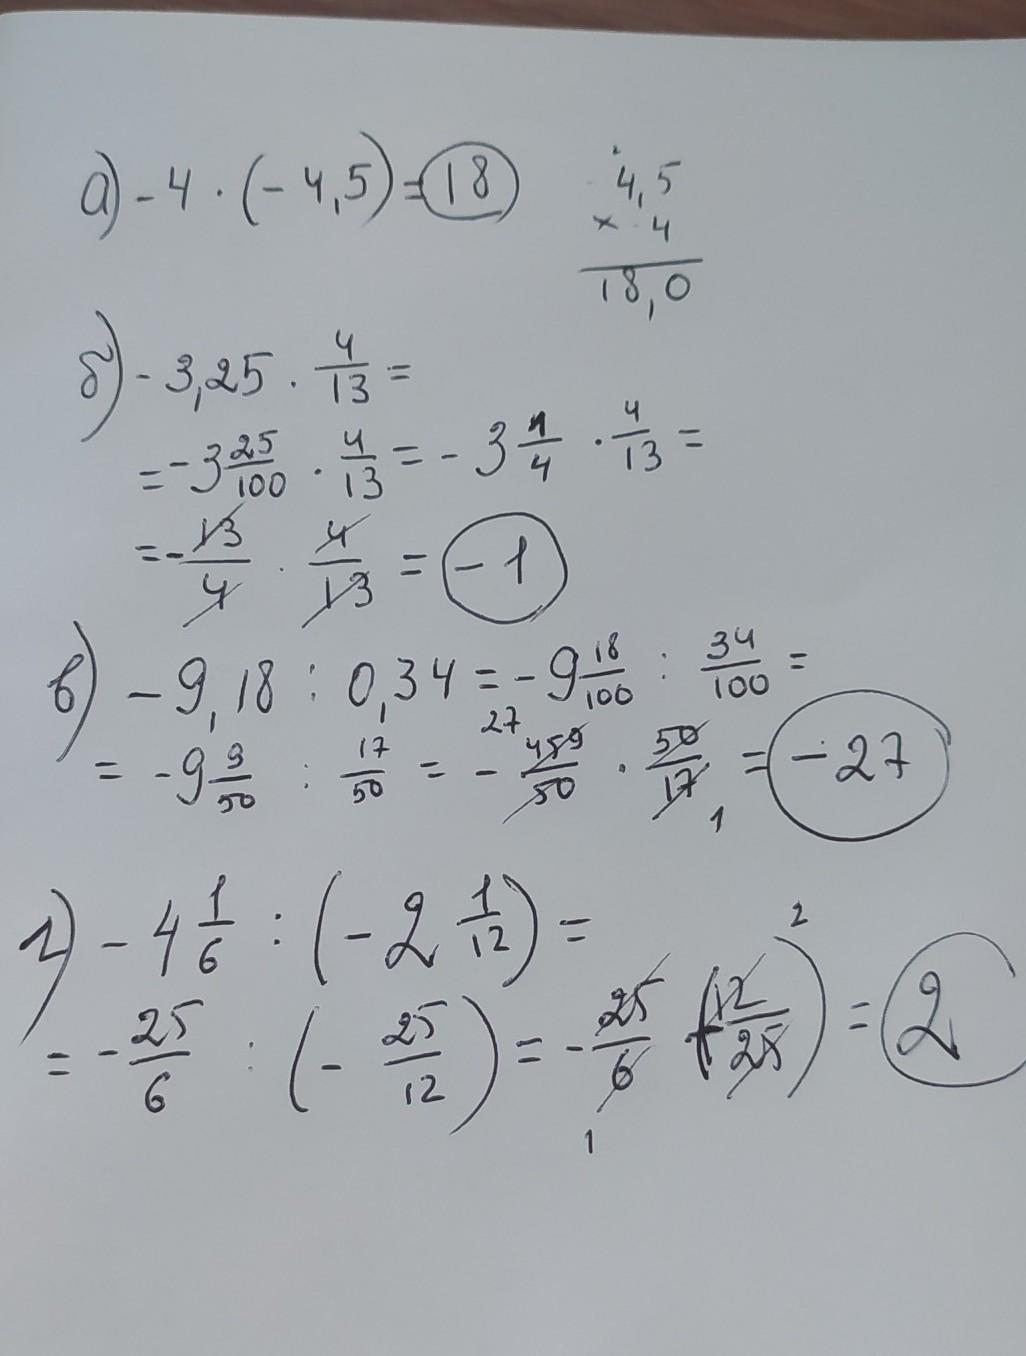 а) - 4 · (- 4,5) = 18
4,5
× 4
18,0
б) - 3,25 · 4/13 =
= - 3 25/100 · 4/13 = - 3 1/4 · 4/13 =
= - 13/4 · 4/13 = - 1
в) - 9,18 : 0,34 = - 9 18/100 : 34/100 =
27
= - 9 9/50 : 17/50 = - 459/50 · 50/17 = - 27
1
г) - 4 1/6 : (- 2 1/12) =
2
= - 25/6 : (- 25/12) = - 25/6 (- 12/25) = 2
1